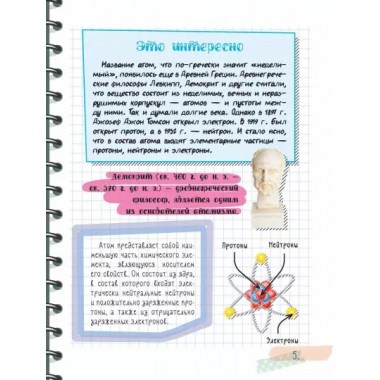 Это интересно
Название атом, что по-гречески значит «недели-
мый», появилось еще в Древней Греции. Древнегрече-
ские философы Левкипп, Демокрит и другие считали,
что вещество состоит из неделимых, вечных и нераз-
рушимых корпускул — атомов — и пустоты меж-
ду ними. Так и думали долгие века. Однако в 1897 г.
Джозеф Джон Томсон открыл электрон. В 1919 г. был
открыт протон, а в 1932 г. — нейтрон. И стало ясно,
что в состав атома входят элементарные частицы —
протоны, нейтроны и электроны.
Демокрит (ок. 460 г. до н. э. —
ок. 370 г. до н. э.) — древнегреческий
философ, является одним
из основателей атомизма.
Атом представляет собой наи-
меньшую часть химического эле-
мента, являющуюся носителем
его свойств. Он состоит из ядра,
в состав которого входят элек-
трически нейтральные нейтроны
и положительно заряженные прото-
ны, а также из отрицательно
заряженных электронов.
Протоны
Нейтроны
Электроны
5